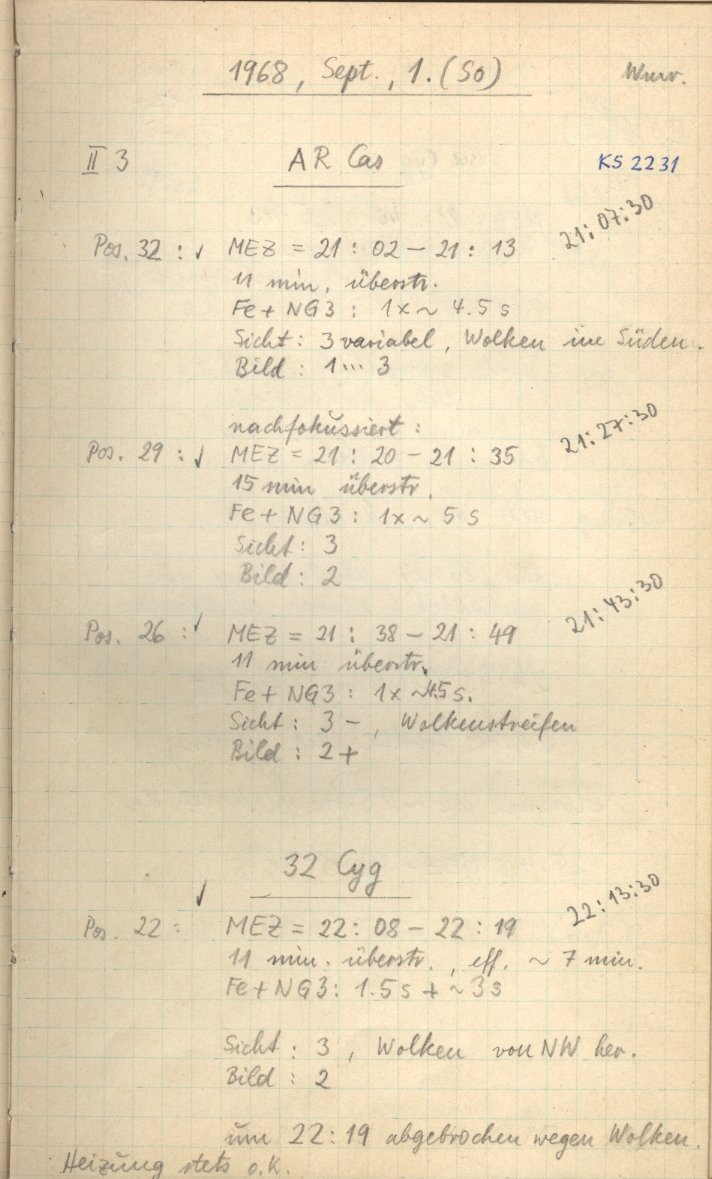 1968, Sept., 1. (So)
II 3 AR Cas KS 2231
21:07:30
Pos. 32 : ✓ MEZ = 21 : 02 – 21 : 13
11 min. überstr.
Fe + NG3 : 1x ~ 4.5 s
Sicht : 3 variabel, Wolken im Süden.
Bild : 1 ... 3
nachfokussiert :
21:27:30
Pos. 29 : ✓ MEZ = 21 : 20 – 21 : 35
15 min überstr.
Fe + NG3 : 1x ~ 5 s
Sicht : 3
Bild : 2
21:43:30
Pos. 26 : ✓ MEZ = 21 : 38 – 21 : 49
11 min überstr.
Fe + NG3 : 1x ~4.5 s.
Sicht : 3 – , Wolkenstreifen
Bild : 2 +
32 Cyg
22:13:30
Pos. 22 : ✓ MEZ = 22 : 08 – 22 : 19
11 min. überstr., eff. ~ 7 min.
Fe + NG3 : 1.5 s + ~ 3 s
Sicht : 3 , Wolken von NW her.
Bild : 2
um 22 : 19 abgebrochen wegen Wolken.
Heizung stets o.k.